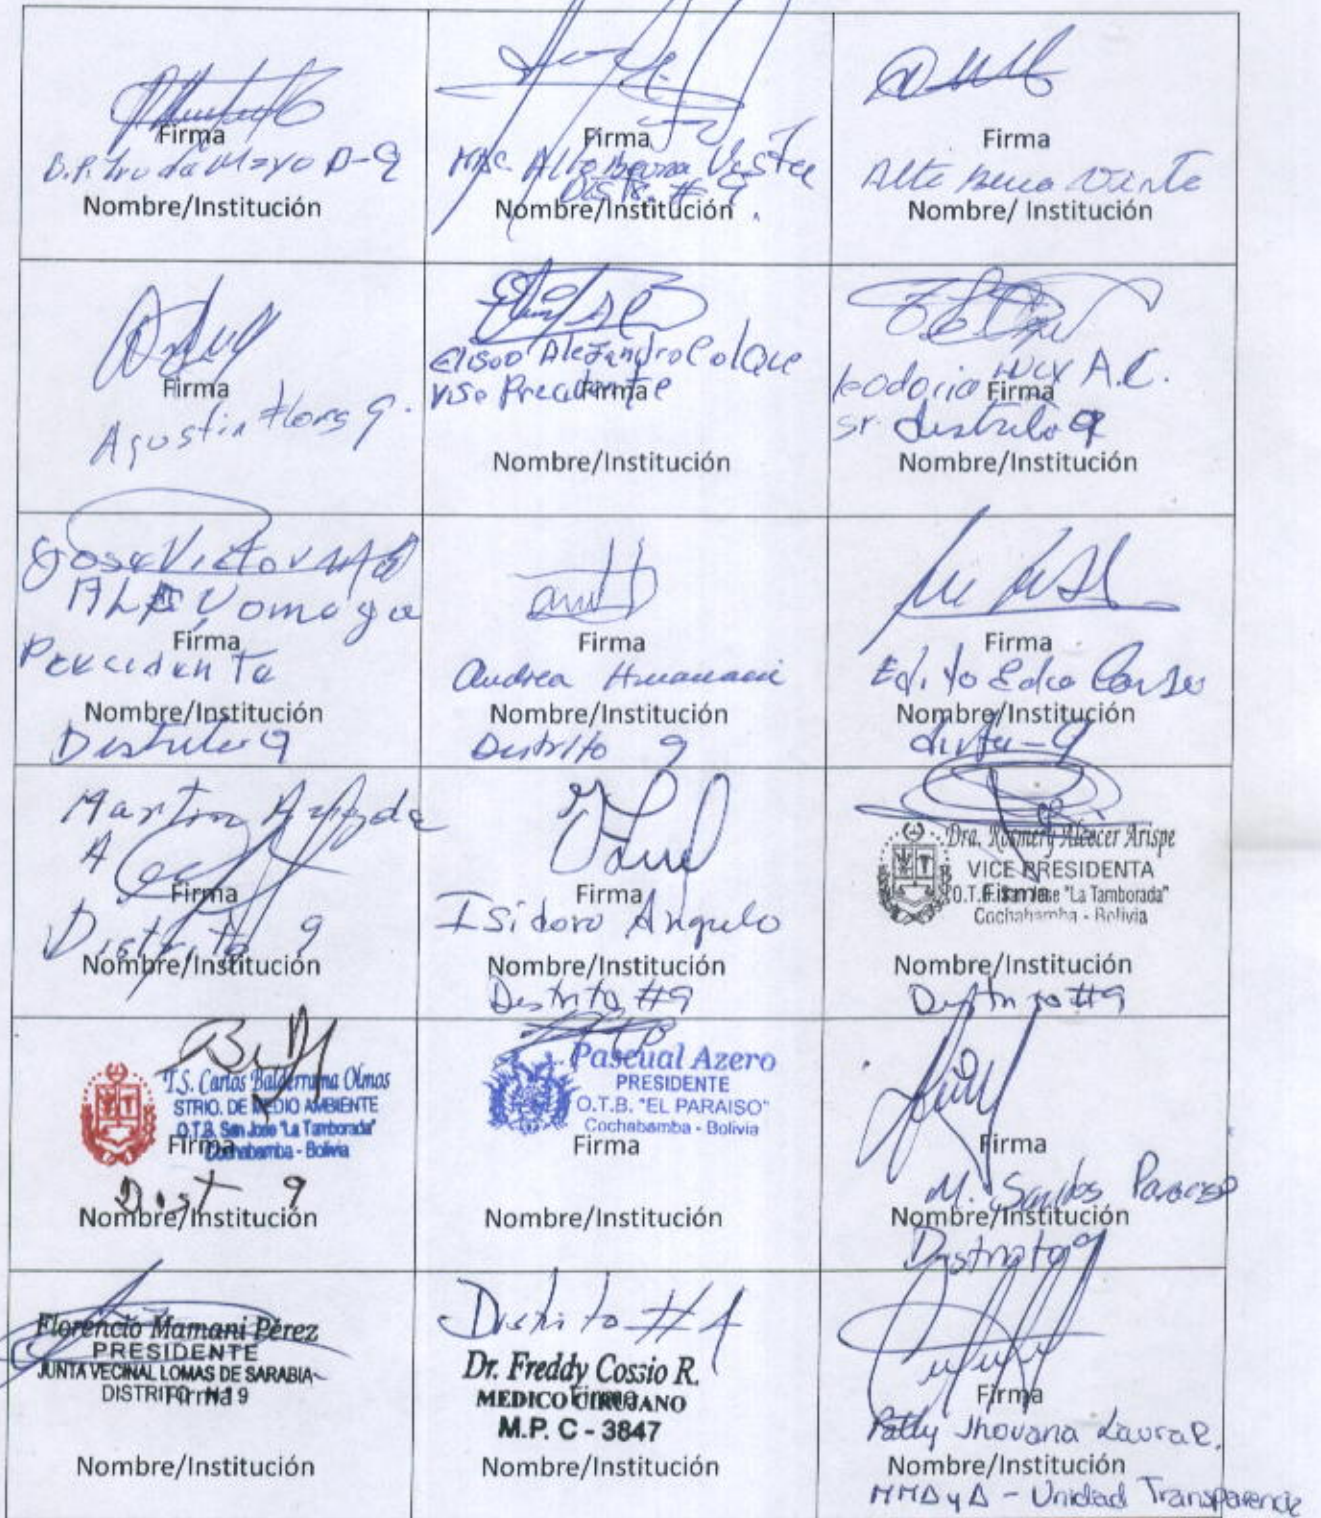 Firma
D-9
Nombre/Institución
Firma
Alto Buena Vista
Dist. # 9
Nombre/Institución
Firma
Alto Buena
Nombre/ Institución
Firma
Agustin Flores G.
Eliseo Alejandro Colque
Firma
Nombre/Institución
Firma A.C.
sr. distrito 9
Nombre/Institución
Jose Victor
Firma
Nombre/Institución
Distrito 9
Firma
Andrea Huamani
Nombre/Institución
Distrito 9
Firma
Nombre/Institución
Martin
A
Firma
Distrito 9
Nombre/Institución
Firma
Isidoro Angulo
Nombre/Institución
Distrito #9
Dra. Rosmery Alcocer Arispe
VICE PRESIDENTA
Firma
O.T.B. San Jose "La Tamborada"
Cochabamba - Bolivia
Nombre/Institución
Distrito #9
T.S. Carlos Balderrama Olmos
STRIO. DE MEDIO AMBIENTE
O.T.B. San Jose "La Tamborada"
Firma
Cochabamba - Bolivia
Dist 9
Nombre/Institución
Pascual Azero
PRESIDENTE
O.T.B. "EL PARAISO"
Cochabamba - Bolivia
Firma
Nombre/Institución
Firma
M. Santos
Nombre/Institución
Distrito 9
Florencio Mamani Pérez
PRESIDENTE
JUNTA VECINAL LOMAS DE SARABIA
DISTRITO Nº 9
Firma
Nombre/Institución
Distrito #
Dr. Freddy Cossio R.
MEDICO CIRUJANO
Firma
M.P. C - 3847
Nombre/Institución
Firma
Patty Jhovana Laura R.
Nombre/Institución
MMAyA - Unidad Transparencia